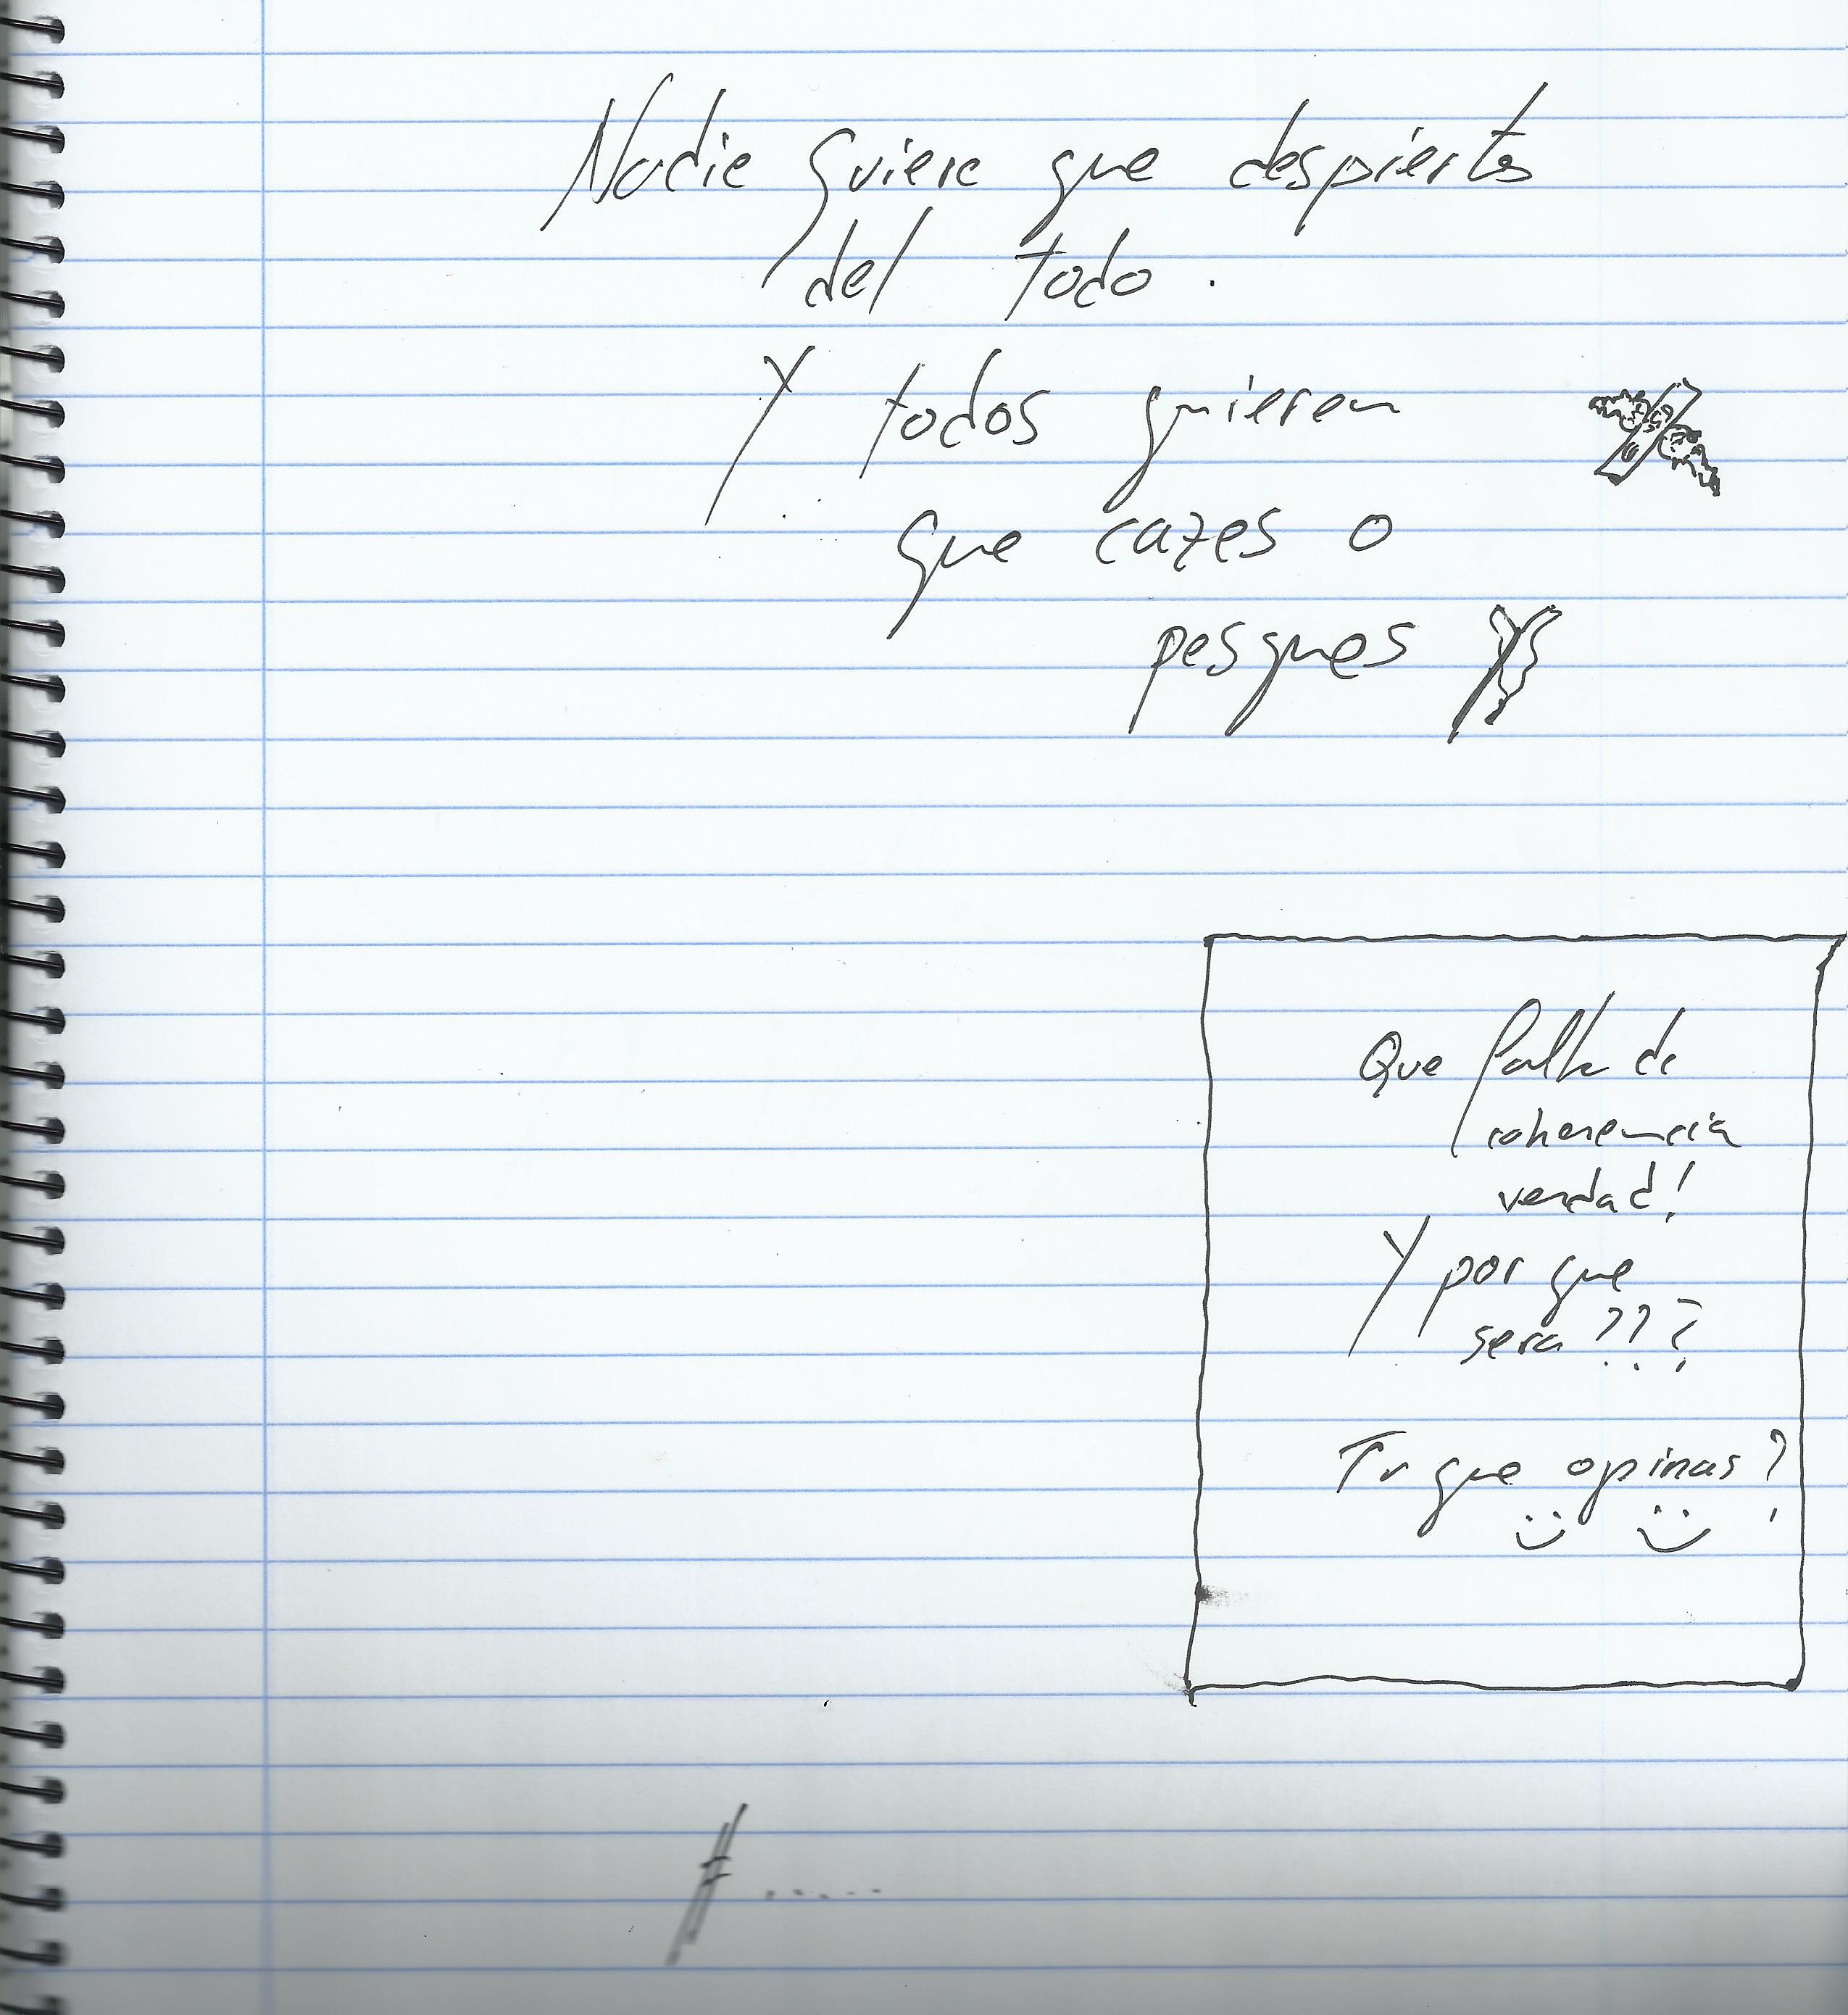 Nadie quiere que despiertes
del todo.
Y todos quieren
que cazes o
pesques
Que falta de
coherencia
verdad!
Y por que
sera???
Tu que opinas?